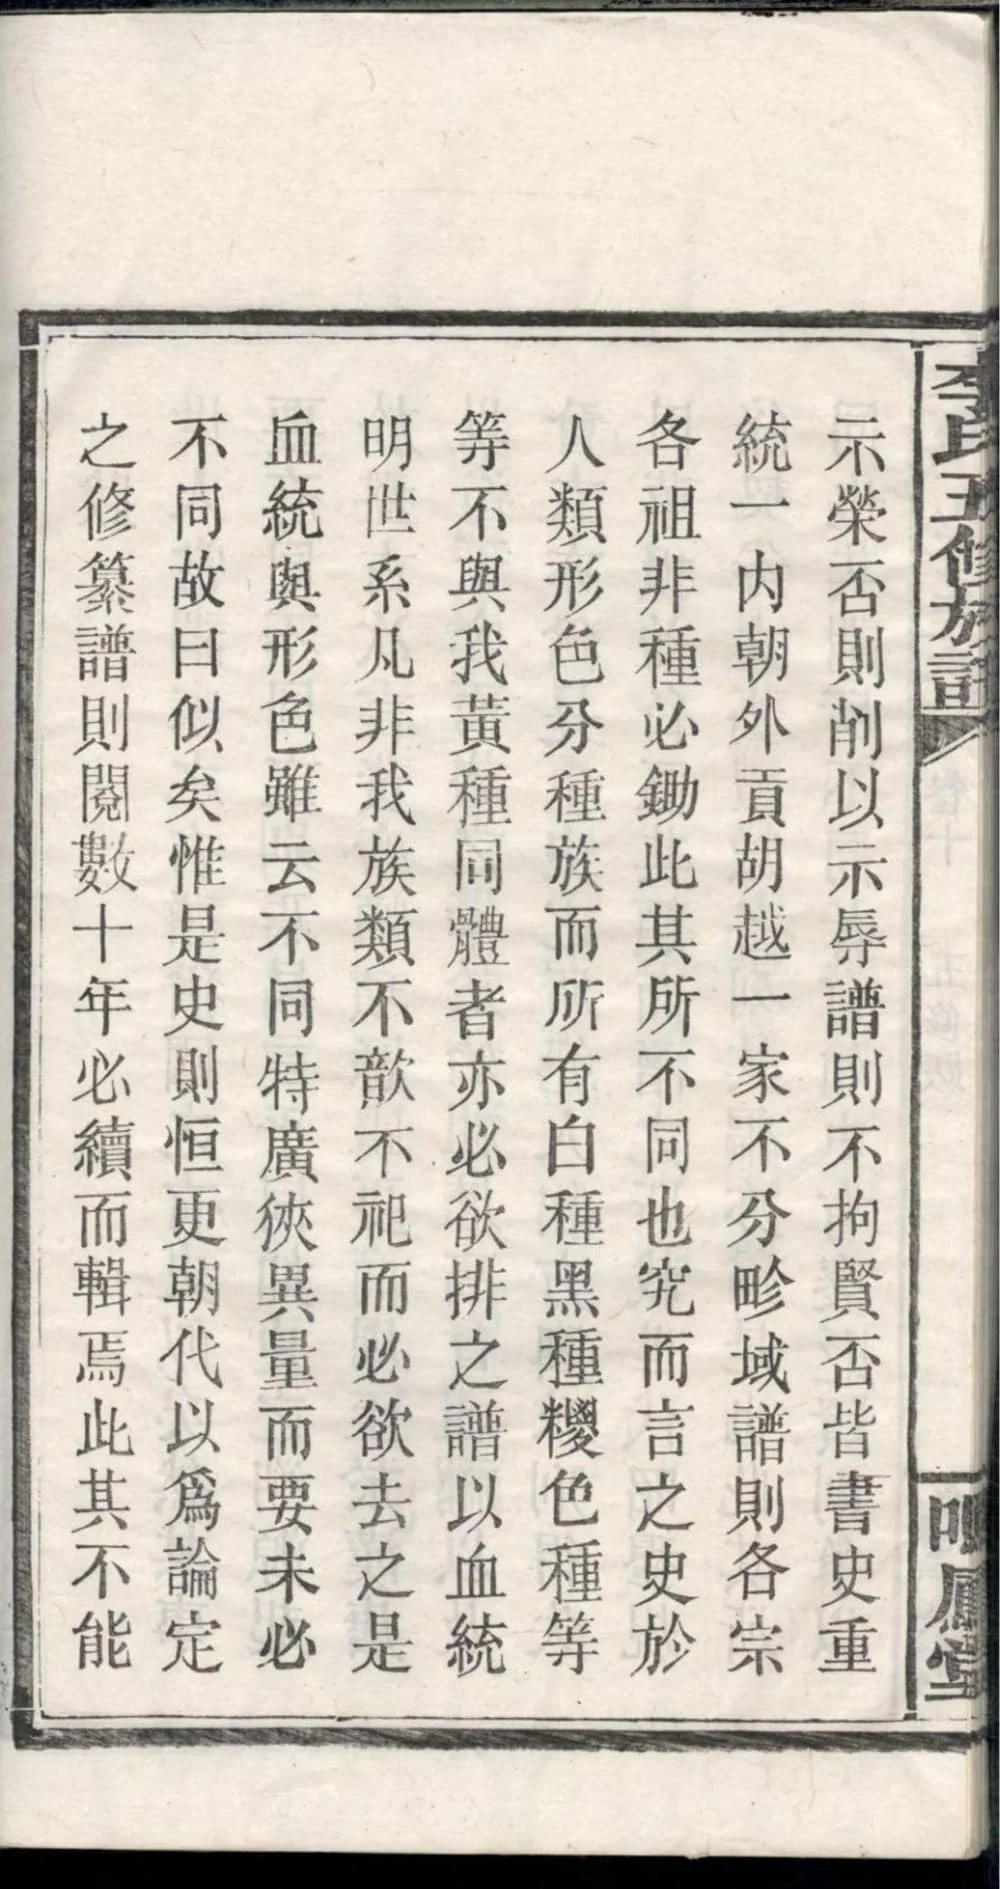 李氏五修族譜
卷十
五修跋
鳴鳳堂
示榮否則削以示辱譜則不拘賢否皆書史重
統一內朝外貢胡越一家不分畛域譜則各宗
各祖非種必鋤此其所不同也究而言之史於
人類形色分種族而所有白種黑種糭色種等
等不與我黃種同體者亦必欲排之譜以血統
明世系凡非我族類不歆不祀而必欲去之是
血統與形色雖云不同特廣狹異量而要未必
不同故曰似矣惟是史則恒更朝代以爲論定
之修纂譜則閱數十年必續而輯焉此其不能